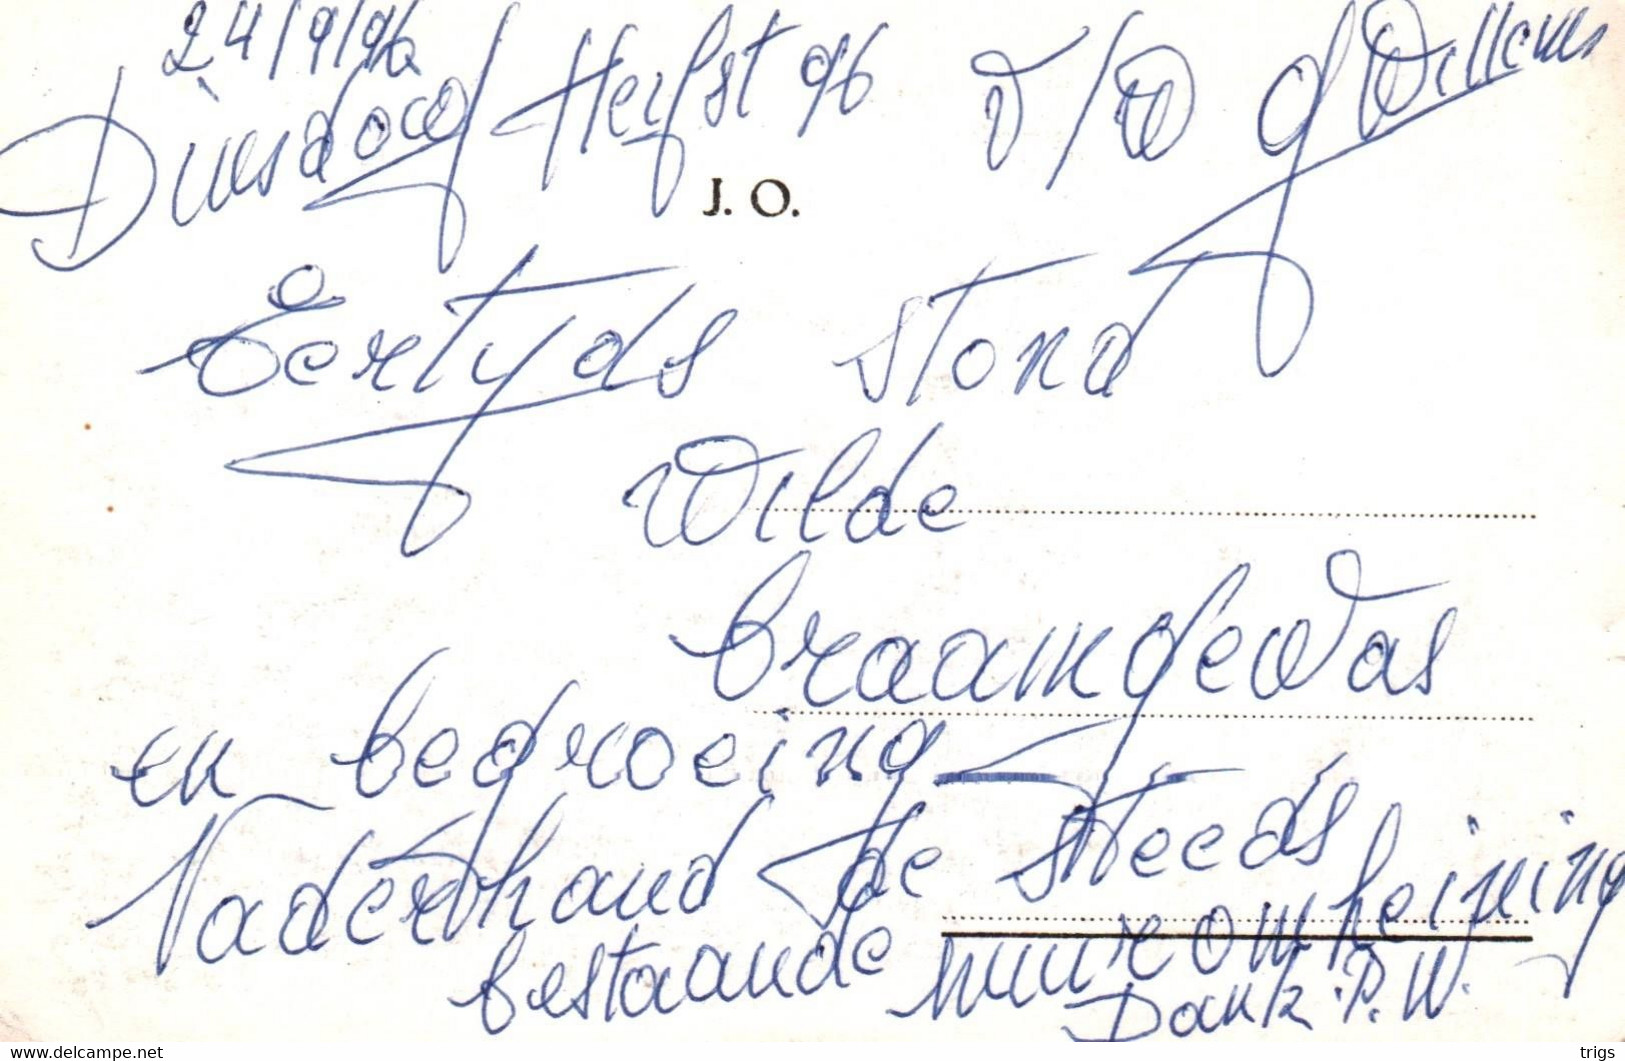 24/9/96
Dinsdag Herfst 96 v/d G Willems
J. O.
Eertyds stond
Wilde
braamgewas
en bedroeing
Naderhand de steeds
bestaande muur omheining
Dank. P. W.
www.delcampe.net
trigs